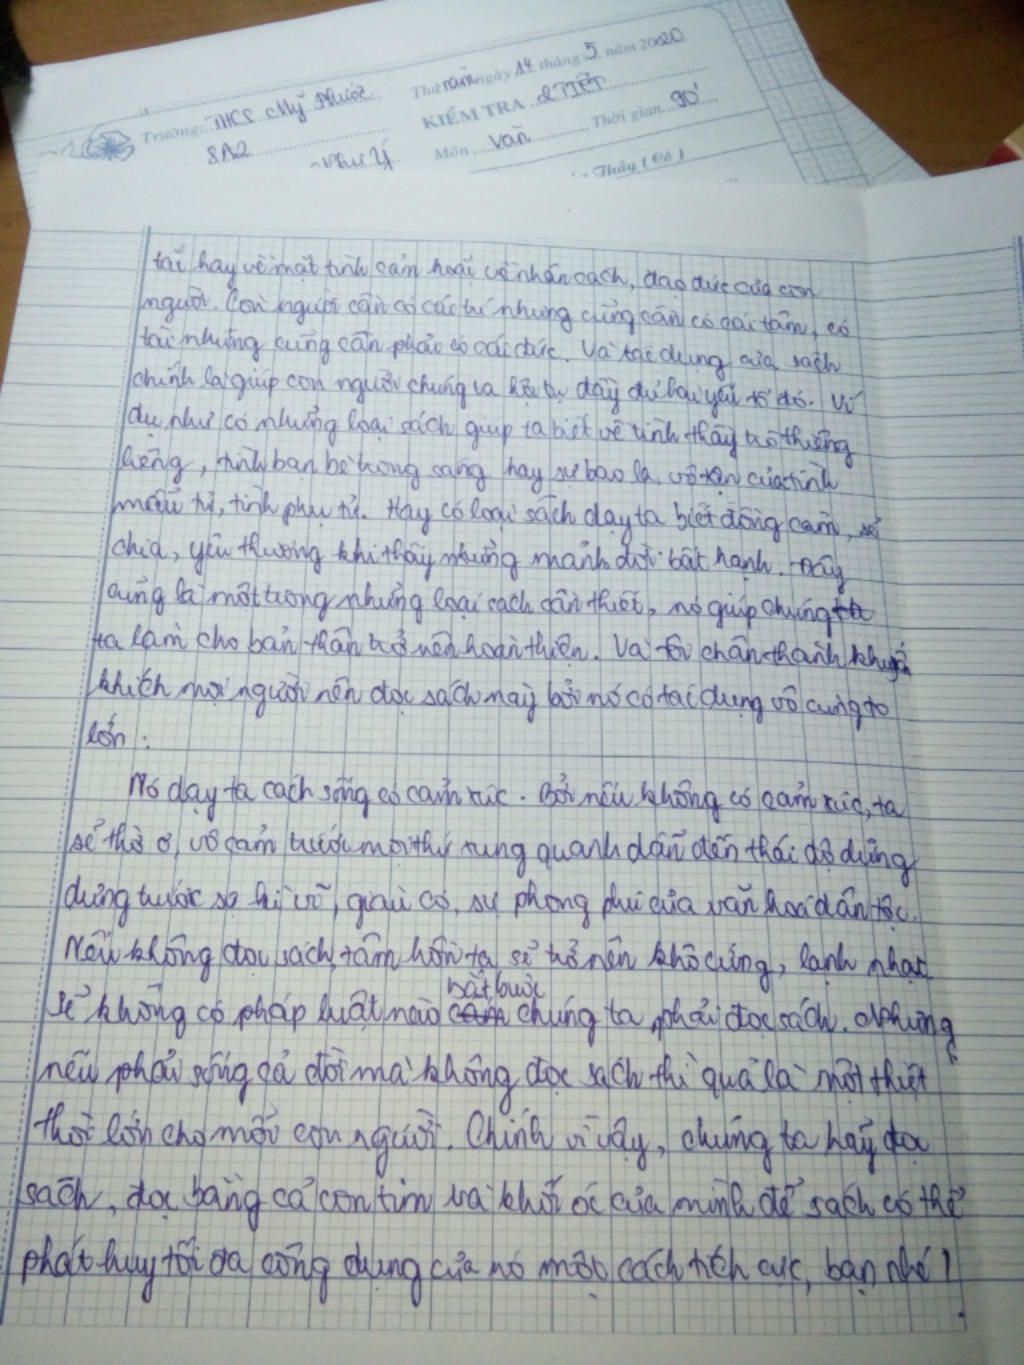 Trường: THCS Mỹ Phước Thứ năm ngày 14 tháng 5 năm 2020
8A2 KIỂM TRA 2 TIẾT
Như Ý Môn Văn Thời gian 90'
Thầy (Cô)
tài hay về mặt tình cảm hoặc về nhân cách, đạo đức của con
người. Con người cần có cái trí nhưng cũng cần có cái tâm, có
tài nhưng cũng cần phải có cái đức. Và tác dụng của sách
chính là giúp con người chúng ta hội tụ đầy đủ hai yếu tố đó. Ví
dụ như có những loại sách giúp ta biết về tình thầy trò thiêng
liêng, tình bạn bè trong sáng hay sự bao la, vô tận của tình
mẫu tử, tình phụ tử. Hay có loại sách dạy ta biết đồng cảm, sẻ
chia, yêu thương khi thấy những mảnh đời bất hạnh. Đây
cũng là một trong những loại sách cần thiết, nó giúp chúng
ta làm cho bản thân trở nên hoàn thiện. Và tôi chân thành khuyến
khích mọi người nên đọc sách này bởi nó có tác dụng vô cùng to
lớn.
Nó dạy ta cách sống có cảm xúc. Bởi nếu không có cảm xúc, ta
sẽ thờ ơ, vô cảm trước mọi thứ xung quanh dẫn đến thái độ dửng
dưng trước sự kì vĩ, giàu có, sự phong phú của văn hoá dân tộc.
Nếu không đọc sách, tâm hồn ta sẽ trở nên khô cứng, lạnh nhạt
bắt buộc
Sẽ không có pháp luật nào chúng ta phải đọc sách. Nhưng
nếu phải sống cả đời mà không đọc sách thì quả là một thiệt
thòi lớn cho mỗi con người. Chính vì vậy, chúng ta hãy đọc
sách, đọc bằng cả con tim và khối óc của mình để sách có thể
phát huy tối đa công dụng của nó một cách tích cực, bạn nhé!